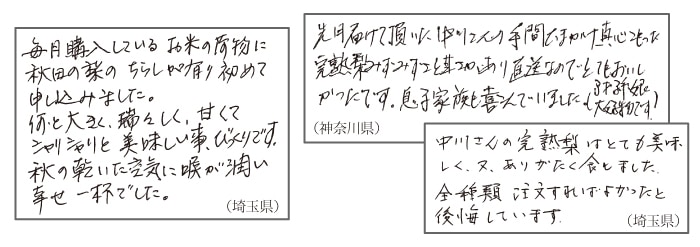 毎月購入しているお米の荷物に
秋田の梨のちらしが有り初めて
申込みました。
何と大きく、瑞々しく、甘くて
シャリシャリと美味しい事、びっくりです。
秋の乾いた空気に喉が潤い
幸せ一杯でした。
（埼玉県）
先日届けて頂いた中川さんの手間ひまかけ真心こもった
完熟梨みずみずしさと甘さがあり直送なのでとてもおいし
かったです。息子家族も喜んでいました
大好物です。
（神奈川県）
中川さんの完熟梨はとても美味
しく、又、ありがたく食しました。
全種類注文すればよかったと
後悔しています。
（埼玉県）